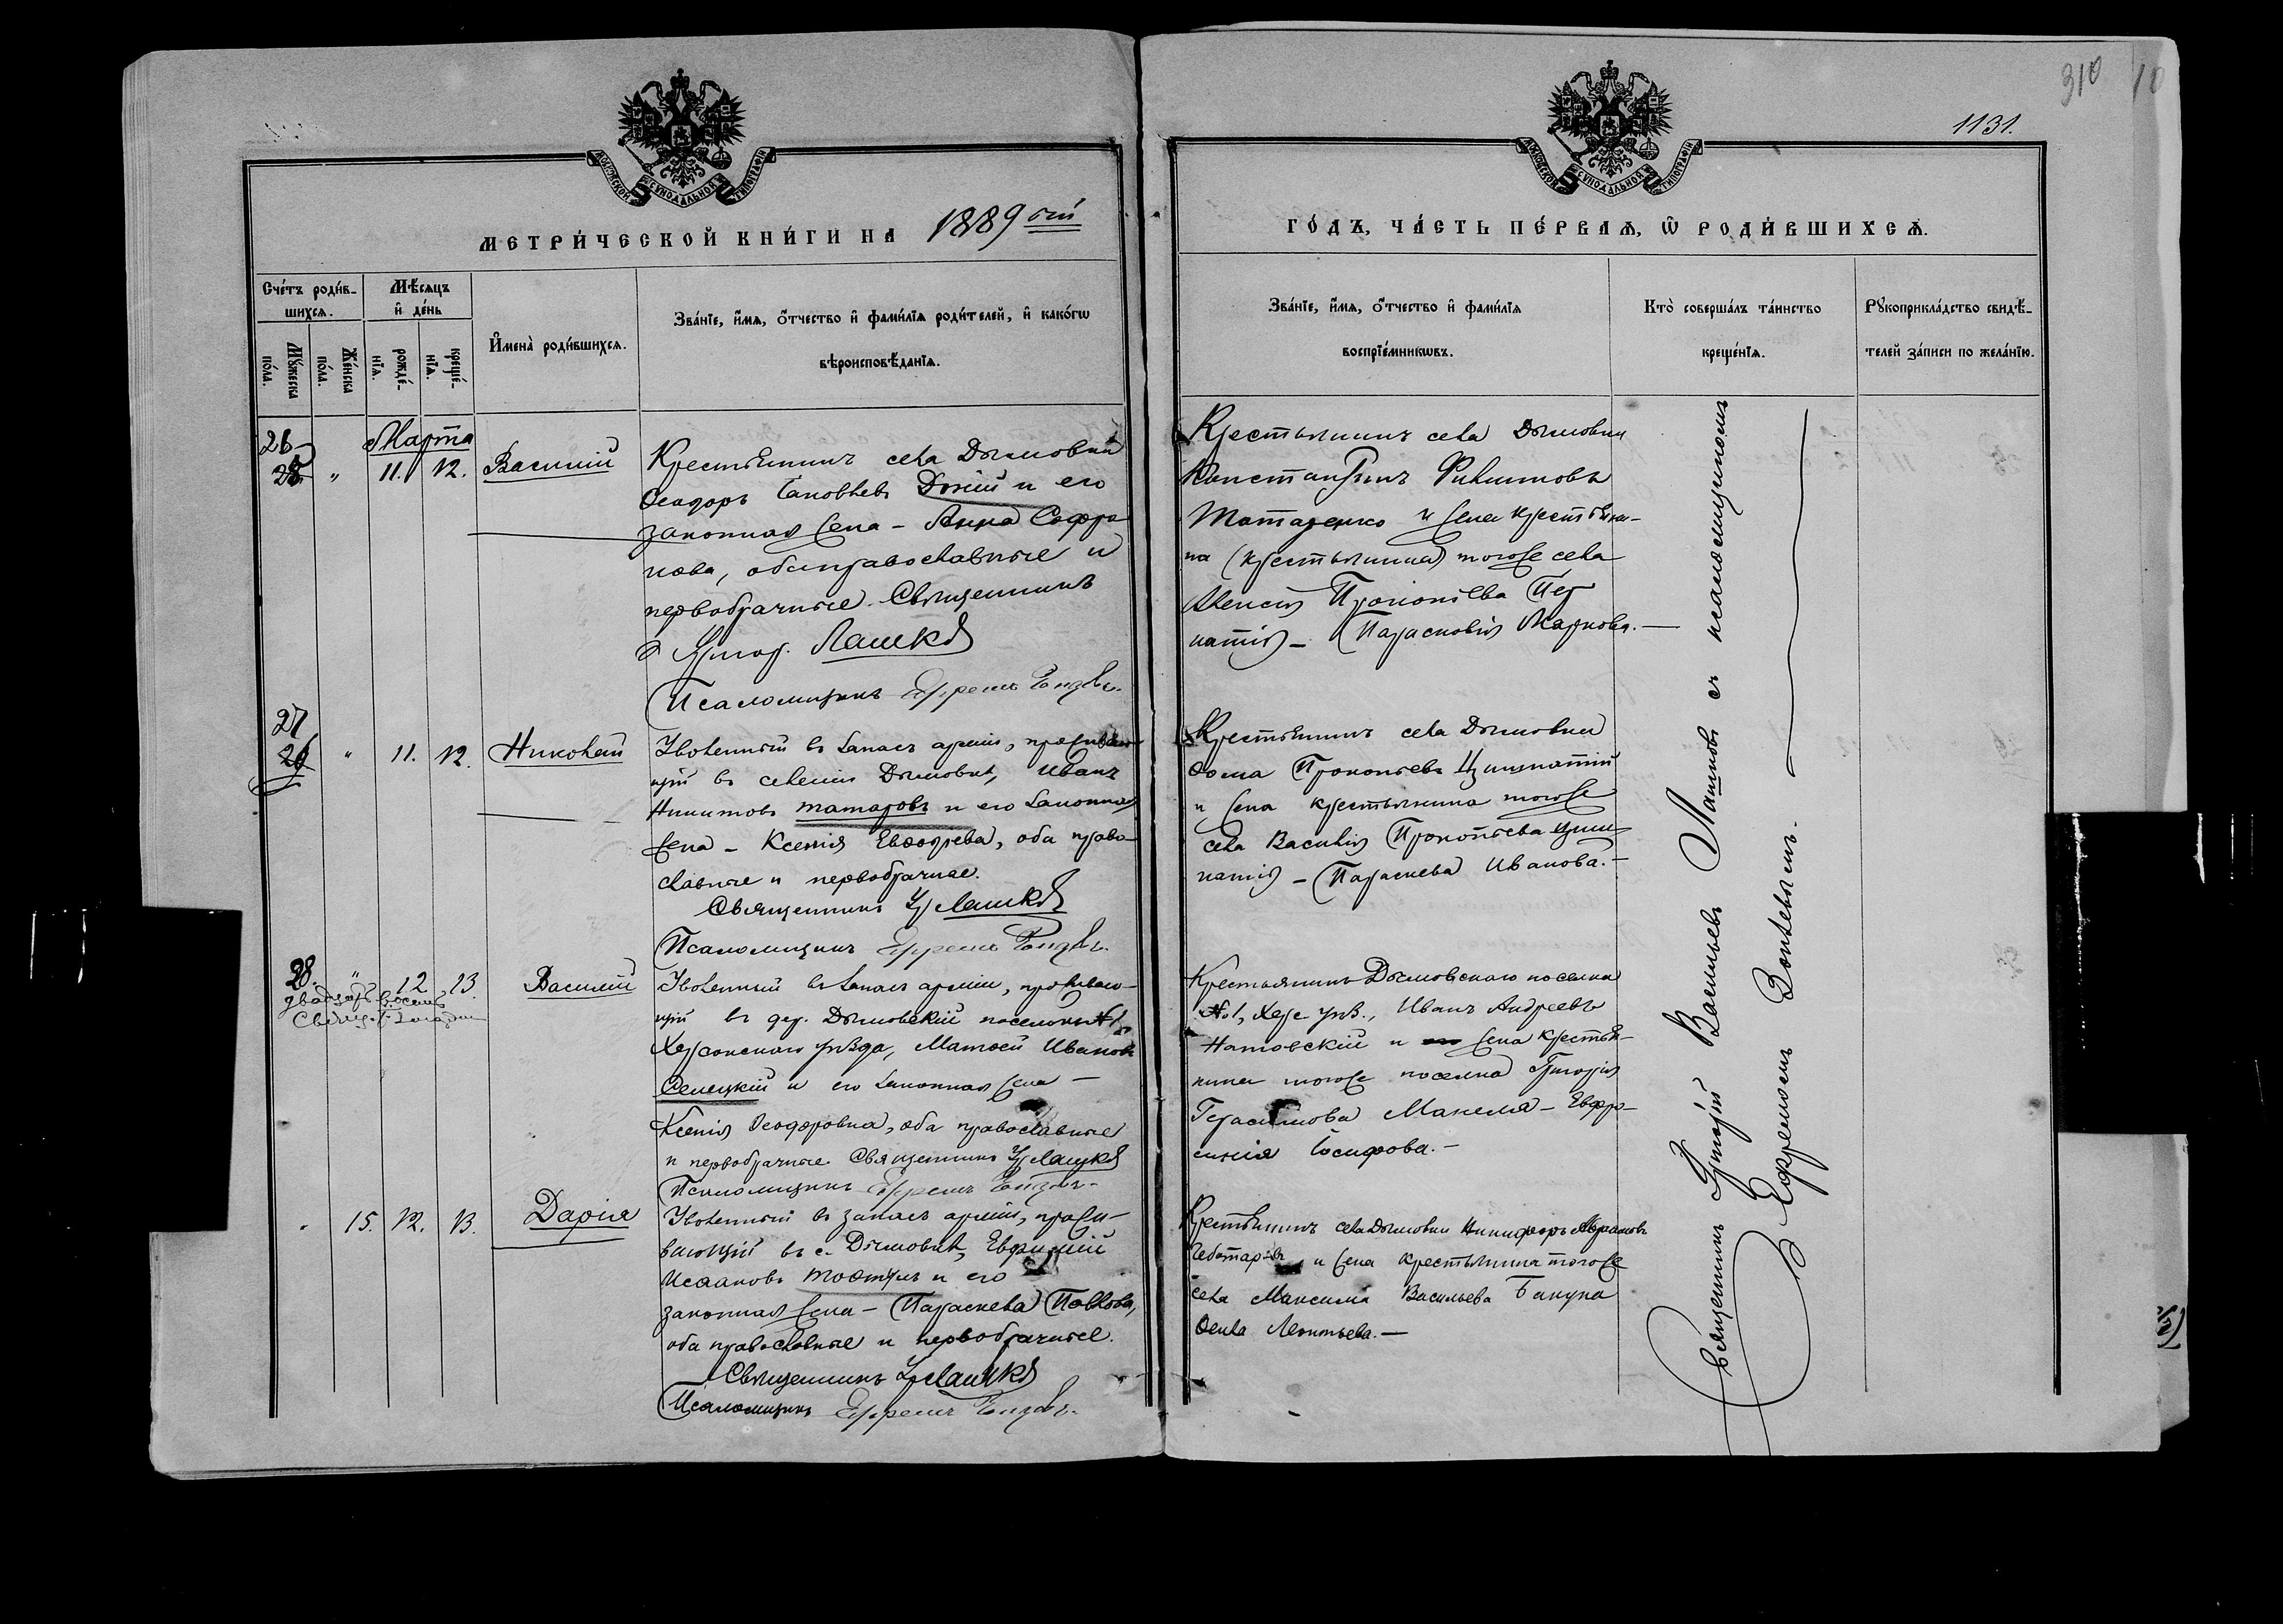 310
10
1131.
МОСКОВСКОЙ СѴНОДАЛЬНОЙ ТИПОГРАФІИ
МЕТРИ́ЧЕСКОЙ КНИ́ГИ НА 1889 ый
Сче́тъ роди́в-
шихсѧ.
Мѣ́сѧцъ
и҆ де́нь
Мꙋ́жеска
по́ла.
Же́нска
по́ла.
рожде́-
нїѧ.
креще́-
нїѧ.
И҆мена̀ роди́вшихсѧ.
Зва́нїе, и҆́мѧ, ѻ҆́тчество и҆ фами́лїѧ роди́телей, и҆ како́гѡ
вѣроисповѣ́данїѧ.
26
25 " Марта 11. 12. Василій
Крестьянинъ села Дымовки
Ѳеодоръ Іаковлевъ Доній и его
законная жена - Анна Софро
нова, оба православные и
первобрачные. Священникъ
Григор. Лашков
Псаломщикъ Ефремъ
27
26 " 11. 12. Николай
Уволенный въ запасъ арміи, прожива
щій въ селеніи Дымовкѣ, Иванъ
Никитовъ Татаровъ и его законная
жена - Ксенія Евдокіева, оба право-
славные и первобрачные.
Священникъ Гр Лашков
Псаломщикъ Ефремъ
28. " 12 13. Василій
двадцать восемь
Свящ.
Уволенный въ запасъ арміи, проживаю-
щій въ дер. Дымовскій поселокъ № 1,
Херсонскаго уѣзда, Матѳей Ивановъ
Селецкій и его законная жена -
Ксенія Ѳеодоровна, оба православные
и первобрачные. Священникъ Гр Лашков
Псаломщикъ Ефремъ
" 15. 12. 13. Дарія
Уволенный въ запасъ арміи, прожи-
вающій въ с. Дымовкѣ, Евфимій
Исааковъ и его
законная жена - Параскева Павлова,
оба православные и первобрачные.
Священникъ Гр Лашков
Псаломщикъ Ефремъ
ГО́ДЪ, ЧА́СТЬ ПЕ́РВАѦ, Ѡ҆ РОДИ́ВШИХСѦ.
Зва́нїе, и҆́мѧ, ѻ҆́тчество и҆ фами́лїѧ
воспрїе́мникѡвъ.
Кто̀ соверша́лъ та́инство
креще́нїѧ.
Рꙋкоприкла́дство свидѣ́-
телей за́писи по жела́нїю.
Крестьянинъ села Дымовки
Константинъ Филиповъ
Татаренко и жена крестьяни-
на (крестьянина) тогоже села
Алексѣя Прокопіева
натія - Парасковія Маркова. -
Крестьянинъ села Дымовки
Ѳома Прокопіевъ Цишнатій
и жена крестьянина тогоже
села Василія Прокопіева Циш
натія - Параскева Иванова. -
Крестьянинъ Дымовскаго поселка
№ 1, Херс. уѣз., Иванъ Андреевъ
Натовскій и жена крестья-
нина тогоже поселка Григорія
Герасимова - Евфро-
синія Іосифова. -
Крестьянинъ села Дымовки Никифоръ Абрамовъ
Чеботаревъ и жена крестьянина тогоже
села Максима Васильева Бакуна
Ѳекла Леонтьева. -
Священникъ Григорій Васильевъ Лашковъ съ псаломщикомъ
Ефремомъ